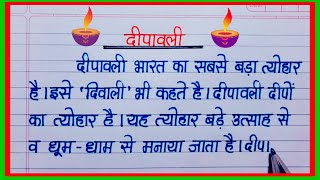 दीपावली
दीपावली भारत का सबसे बड़ा त्योहार
है। इसे 'दिवाली' भी कहते है। दीपावली दीपों
का त्योहार है। यह त्योहार बड़े उत्साह से
व धूम-धाम से मनाया जाता है। दीपा